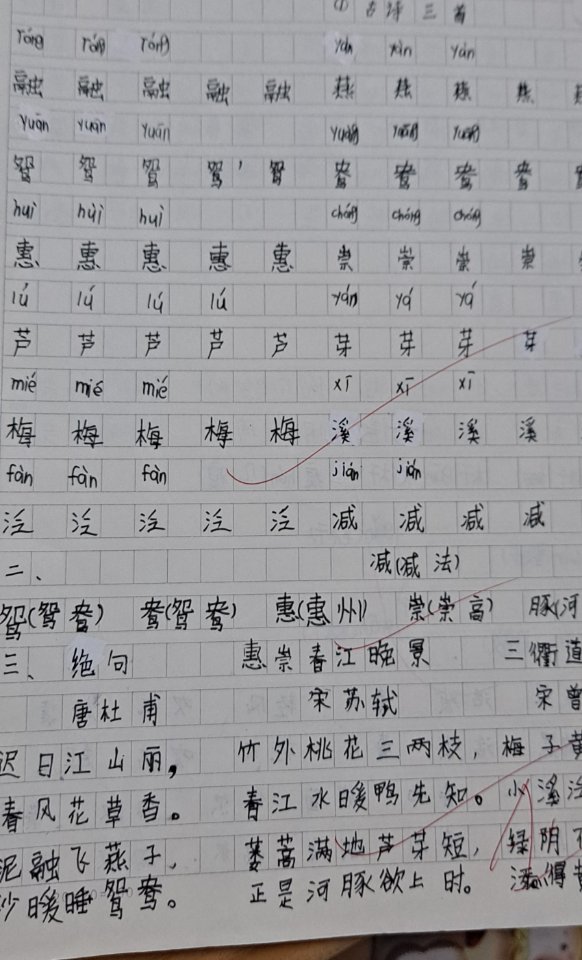 ① 古诗三首
róng róng róng yàn xàn yán
融 融 融 融 融 燕 燕 燕 燕
yuān yuān yuān yuāng yuāng yuāng
鸳 鸳 鸳 鸳 , 鸳 鸯 鸯 鸯 鸯
huì hùi huì chóng chóng chóng
惠 惠 惠 惠 惠 崇 崇 崇 崇 崇
lú lú lú lú yán yá yá
芦 芦 芦 芦 芦 芽 芽 芽 芽
mié mié mié xī xī xī
梅 梅 梅 梅 梅 溪 溪 溪 溪
fàn fàn fàn jián jián
泛 泛 泛 泛 泛 减 减 减 减
二、 减(减法)
鸳(鸳鸯) 鸯(鸳鸯) 惠(惠州) 崇(崇高) 豚(河
三、绝句 惠崇春江晚景 三衢道
唐杜甫 宋苏轼 宋曾
迟日江山丽, 竹外桃花三两枝, 梅子黄
春风花草香。 春江水暖鸭先知。 小溪泛
泥融飞燕子, 蒌蒿满地芦芽短, 绿阴
沙暖睡鸳鸯。 正是河豚欲上时。 添得黄